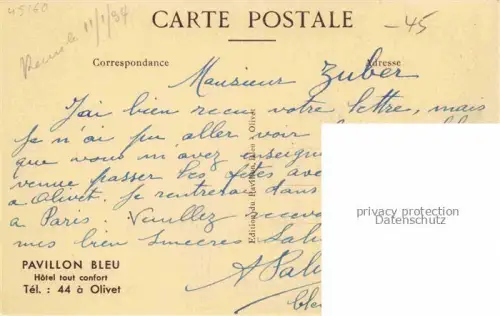 45160
CARTE POSTALE
-45
Reçu le 11/1/37
Correspondance
Adresse
Monsieur Zuber
J'ai bien reçu votre lettre, mais
je n'ai pu aller voir
que vous m'avez enseign
venue passer les fêtes ave
a Olivet. Je rentrerai dans
a Paris. Veuillez recevo
mes bien sincères Salu
Edition du Pavillon Bleu - Olivet
privacy protection
Datenschutz
PAVILLON BLEU
Hôtel tout confort
Tél. : 44 à Olivet